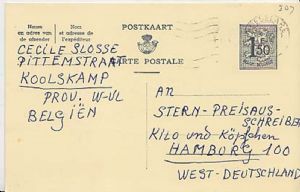 307
POSTKAART
Naam en adres van de afzender
Nom et adresse de l'expéditeur
CARTE POSTALE
1F50
CECILE SLOSSE
PITTEMSTRAAT
KOOLSKAMP
PROV. W-VL
BELGIËN
AN
STERN-PREISAUS-
SCHREIBEN
KILO und Köpfchen
HAMBORG 100
WEST-DEUTSCHLAND